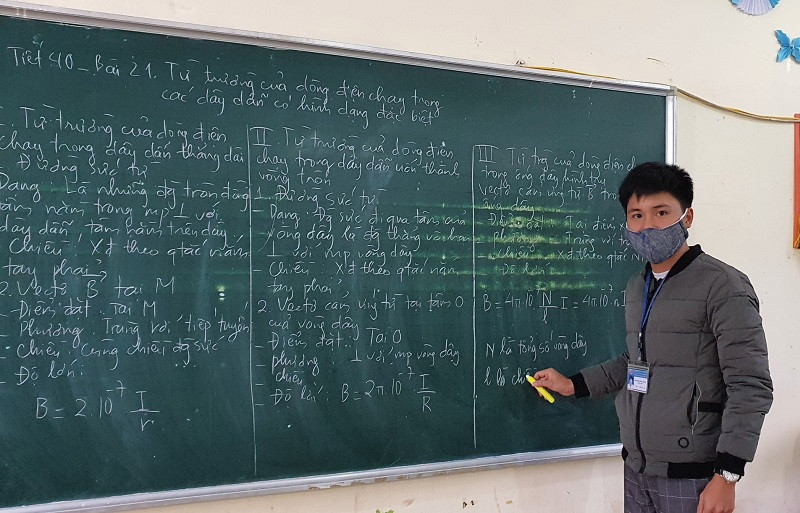 Tiết 40 - Bài 21. Từ trường của dòng điện chạy trong
các dây dẫn có hình dạng đặc biệt
I. Từ trường của dòng điện
chạy trong dây dẫn thẳng dài
1. Đường sức từ
- Dạng: Là những đg tròn đồng
tâm nằm trong mp ⊥ với
dây dẫn, tâm nằm trên dây
- Chiều: Xđ theo qtắc nắm
tay phải
2. Vectơ B⃗ tại M
- Điểm đặt: Tại M
- Phương: Trùng với tiếp tuyến
- Chiều: Cùng chiều đg sức
- Độ lớn:
B = 2.10⁻⁷ I/r
II. Từ trường của dòng điện
chạy trong dây dẫn uốn thành
vòng tròn
1. Đường sức từ
- Dạng: Đg sức đi qua tâm của
vòng dây là đg thẳng vô hạn
⊥ với mp vòng dây
- Chiều: Xđ theo qtắc nắm
tay phải
2. Vectơ cảm ứng từ tại tâm O
của vòng dây
- Điểm đặt: Tại O
- Phương ⊥ với mp vòng dây
- Chiều
- Độ lớn: B = 2π.10⁻⁷ I/R
III. Từ trg của dòng điện ch
trong ống dây hình trụ
Vectơ cảm ứng từ B⃗ trong
ống dây
- Điểm đặt: Tại điểm
- Phương: Trùng với tr
- Chiều: Xđ theo qtắc nắ
- Độ lớn:
B = 4π.10⁻⁷ N/l I = 4π.10⁻⁷ n I
N là tổng số vòng dây
l là chi